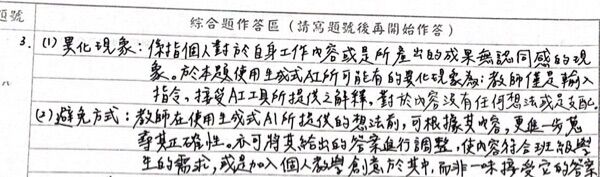 題號 綜合題作答區（請寫題號後再開始作答）
3. (1) 異化現象：係指個人對於自身工作內容或是所產出的成果無認同感的現
象。於本題使用生成式AI所可能有的異化現象為：教師僅是輸入
指令，接受AI工具所提供之解釋，對於內容沒有任何想法或是支配。
(2) 避免方式：教師在使用生成式AI所提供的想法前，可根據其內容，更進一步蒐
尋其正確性。亦可將其給出的答案進行調整，使內容符合班級學
生的需求，或是加入個人教學創意於其中，而非一味接受它的答案